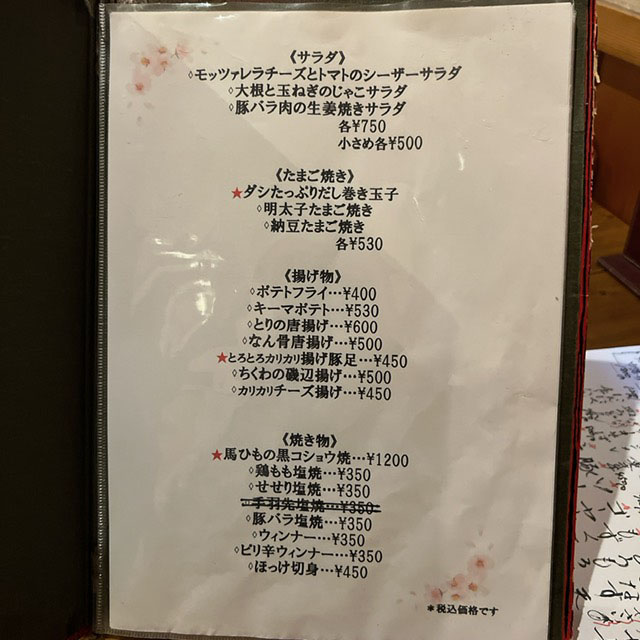 《サラダ》
◇モッツァレラチーズとトマトのシーザーサラダ
◇大根と玉ねぎのじゃこサラダ
◇豚バラ肉の生姜焼きサラダ
各¥750
小さめ各¥500
《たまご焼き》
★ダシたっぷりだし巻き玉子
◇明太子たまご焼き
◇納豆たまご焼き
各¥530
《揚げ物》
◇ポテトフライ…¥400
◇キーマポテト…¥530
◇とりの唐揚げ…¥600
◇なん骨唐揚げ…¥500
★とろとろカリカリ揚げ豚足…¥450
◇ちくわの磯辺揚げ…¥500
◇カリカリチーズ揚げ…¥450
《焼き物》
★馬ひもの黒コショウ焼…¥1200
◇鶏もも塩焼…¥350
◇せせり塩焼…¥350
◇手羽先塩焼…¥350
◇豚バラ塩焼…¥350
◇ウィンナー…¥350
◇ピリ辛ウィンナー…¥350
◇ほっけ切身…¥450
*税込価格です